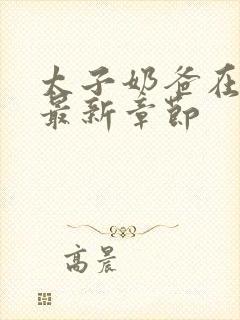 太子奶爸在
最新章節
高晨